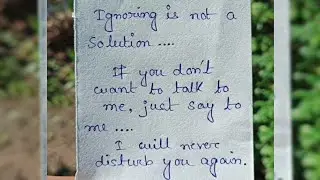 Ignoring is not a
solution ....
If you don't
want to talk to
me, just say to
me ....
I will never
disturb you again.